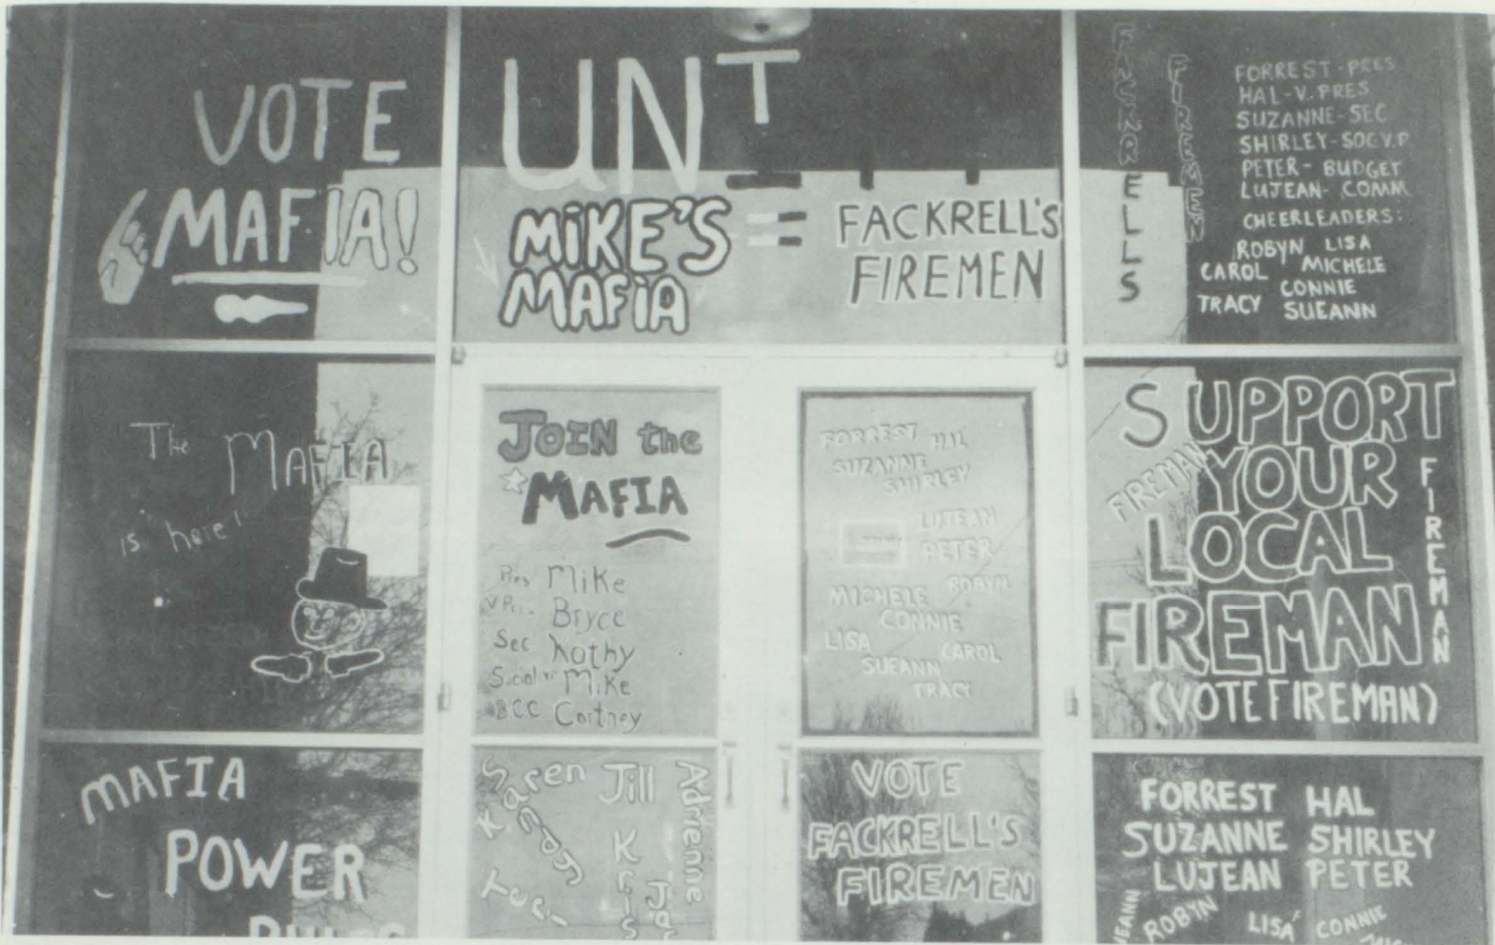 VOTE
MAFIA!
UNT
MIKE'S
MAFIA
=
FACKRELL'S
FIREMEN
FACKRELLS
FIREMEN
FORREST-PRES
HAL-V. PRES
SUZANNE-SEC
SHIRLEY-SOC V.P
PETER- BUDGET
LUJEAN- COMM
CHEERLEADERS:
ROBYN LISA
CAROL MICHELE
CONNIE
TRACY SUEANN
The MAFIA
is here!
JOIN the
MAFIA
Pres Mike
V Pres. Bryce
Sec Kathy
Social VP Mike
BCC Cortney
FORREST HAL
SUZANNE
SHIRLEY
LUJEAN
PETER
MICHELE ROBYN
CONNIE
LISA CAROL
SUEANN
TRACY
SUPPORT
YOUR
LOCAL
FIREMAN
(VOTE FIREMAN)
FIREMAN
FIREMAN
MAFIA
POWER
Karen
Sandy
Jill
Kris
Adrienne
VOTE
FACKRELL'S
FIREMEN
FORREST HAL
SUZANNE SHIRLEY
LUJEAN PETER
ROBYN LISA CONNIE